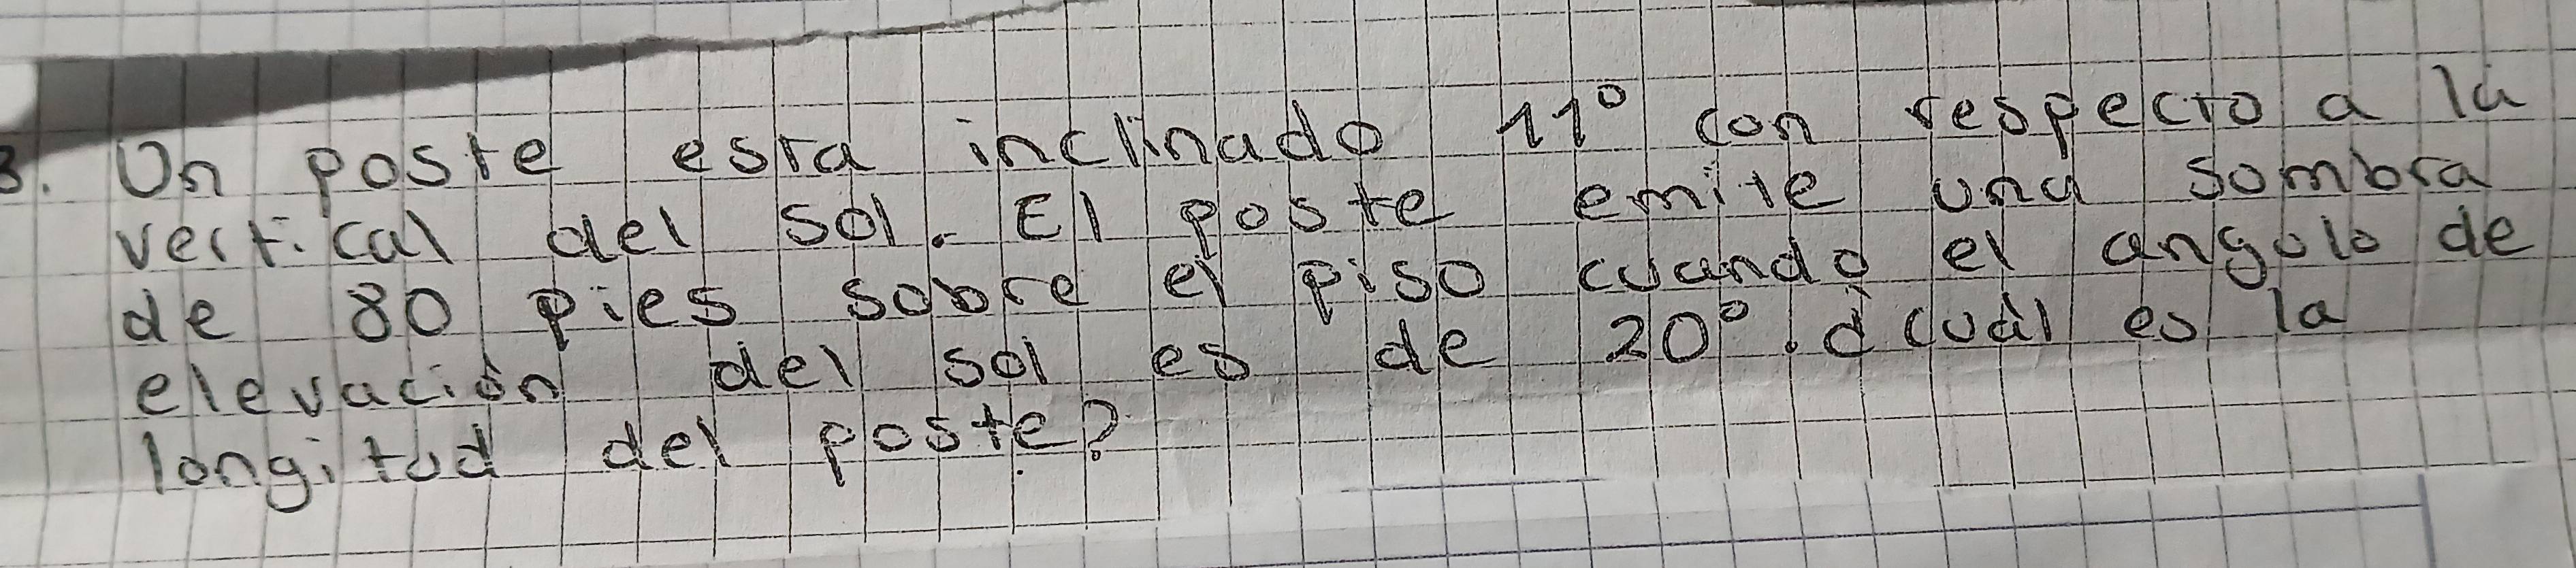 3. Un poste esta inclinado 11° con respecto a la
vertical del sol. El poste emite una sombra
de 80 pies sobre el piso cuando el angulo de
elevación del sol es de 20°. ¿cuál es la
longitud del poste?